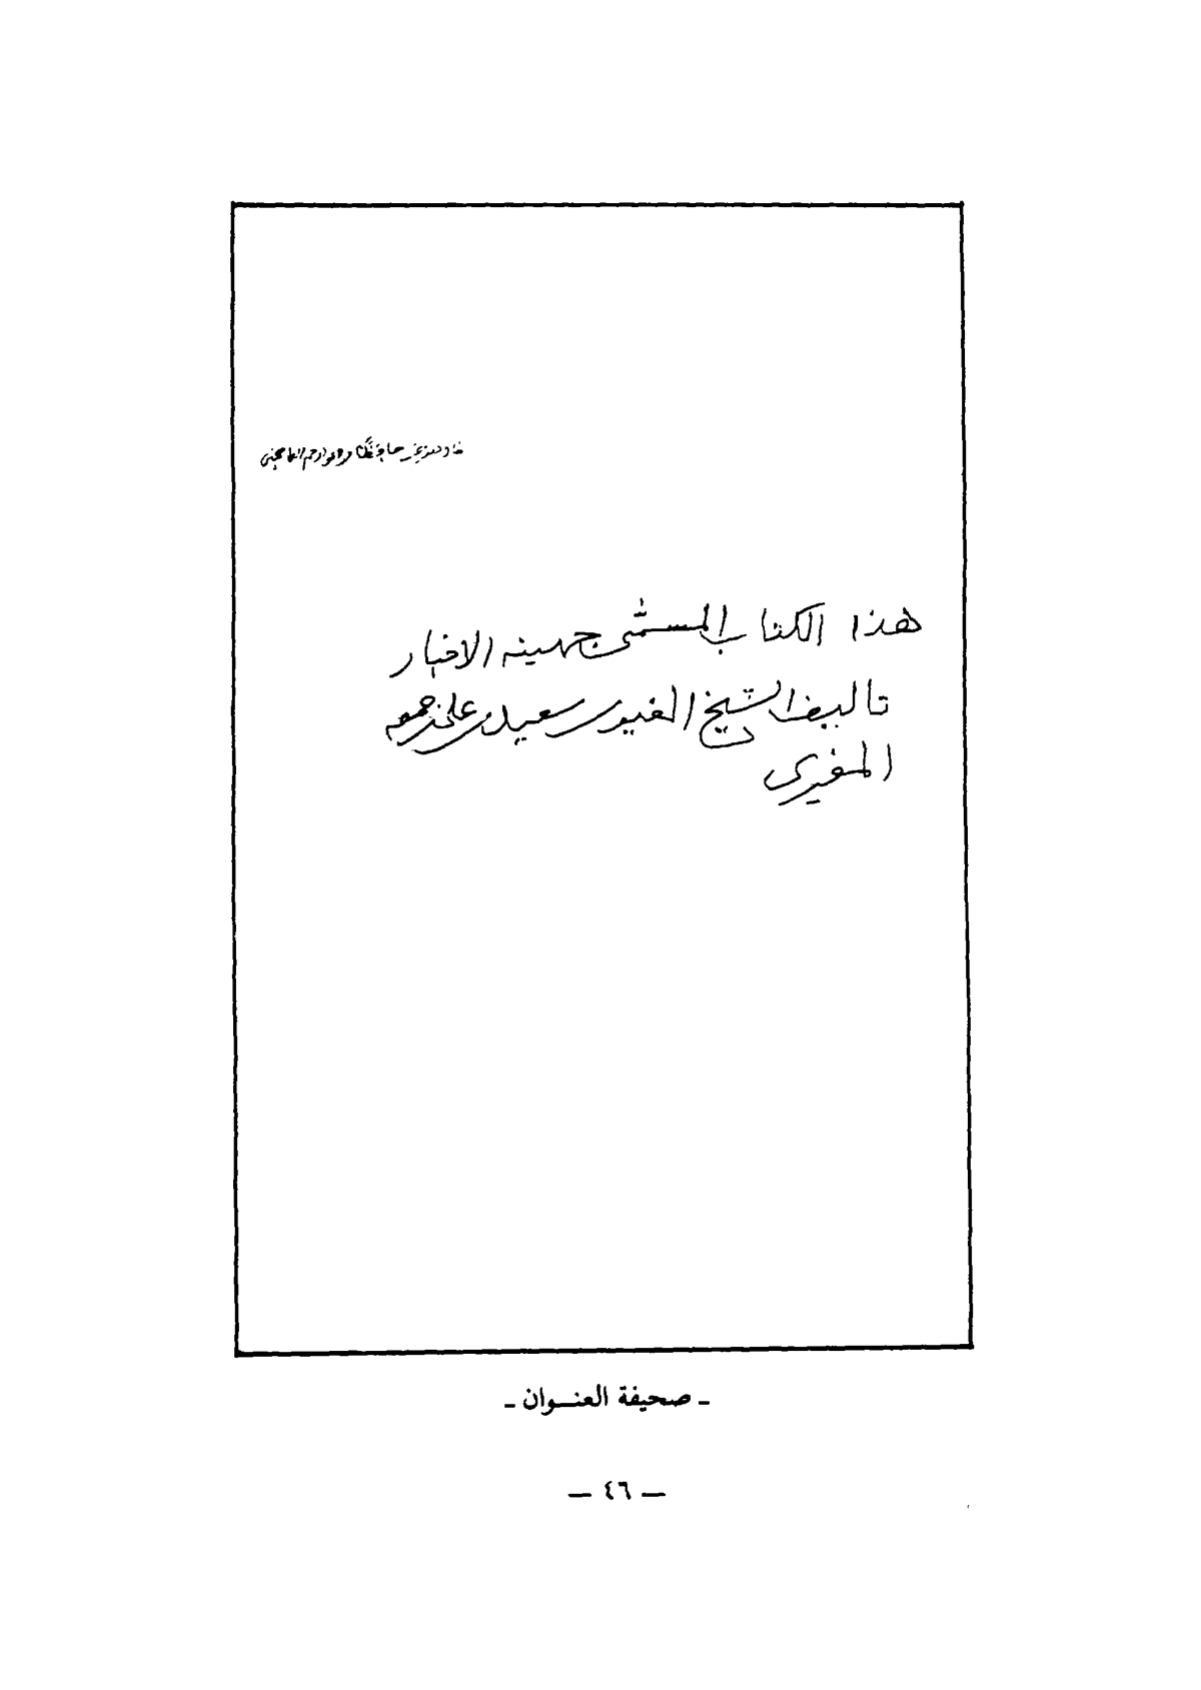 هذا الكتاب المسمى جهينه الاخبار
تاليف الشيخ الغيور سعيد بن علي بن جمعه
المغيري
ـ صحيفة العنـوان ـ
— ٤٦ —